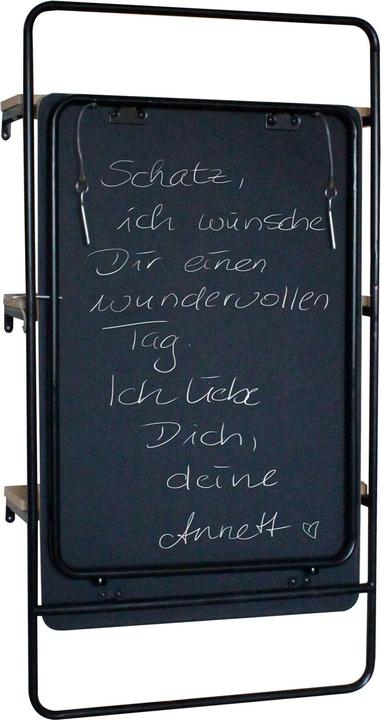 Schatz,
ich wünsche
Dir einen
wundervollen
Tag.
Ich liebe
Dich,
deine
Annett ♡